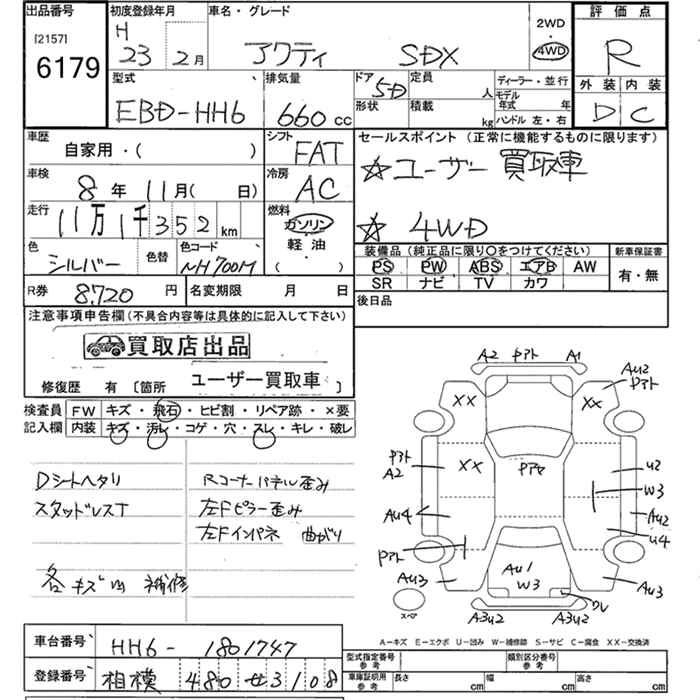 出品番号 初度登録年月 車名・グレード 2WD 評価点
[2157] H 23 2月 アクティ SDX 4WD R
6179 型式 排気量 ドア 5D 定員 人 ディーラー・並行 外装 内装
EBD-HH6 660cc 形状 積載 kg モデル年式 年 D C
ハンドル 左・右
車歴 シフト セールスポイント (正常に機能するものに限ります)
自家用・( ) FAT ☆ユーザー買取車
車検 8年 11月( 日) 冷房 AC
走行 11万1千352km 燃料 ガソリン ☆4WD
軽油
( )
色 シルバー 色替 色コード NH700M 装備品 (純正品に限り○をつけてください) 新車保証書
PS PW ABS エアB AW 有・無
SR ナビ TV カワ
R券 8,720円 名変期限 月 日 後日品
注意事項申告欄 (不具合内容等は具体的に記入して下さい)
買取店出品
修復歴 有 〔箇所 ユーザー買取車 〕
検査員 FW キズ・飛石・ヒビ割・リペア跡・×要
記入欄 内装 キズ・汚レ・コゲ・穴・スレ・キレ・破レ
Dシートヘタリ Rコーナーパネル歪み
スタッドレスT 左Fピラー歪み
左Fインパネ 曲がり
各キズ凹 補修
A2 Pアト A1
AU2 Pアト
XX XX
Pアト A2 XX Pアセ U2
W3
AU4 AU2
U4
Pアト
AU3 AU1 W3 AU3
ワレ
スペア A3U2 A3U2
A-キズ E-エクボ U-凹み W-補修跡 S-サビ C-腐食 XX-交換済
車台番号 HH6-1801747 型式指定番号 参考 類別区分番号 参考
登録番号 相模 480 せ 3108 車庫証明用 参考 長さ cm 幅 cm 高さ cm